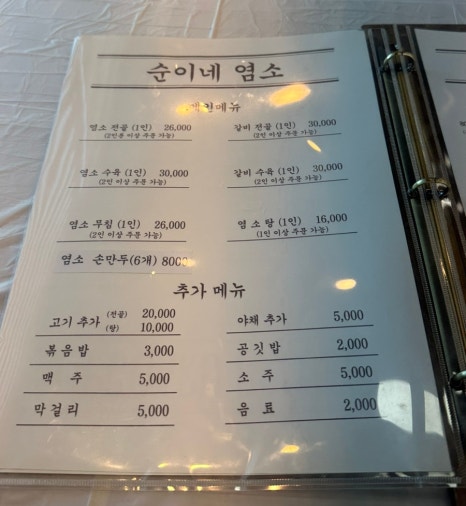 순이네 염소
메인메뉴
염소 전골 (1인) 26,000
(2인분 이상 주문 가능)
갈비 전골 (1인) 30,000
(2인 이상 주문 가능)
염소 수육 (1인) 30,000
(2인 이상 주문 가능)
갈비 수육 (1인) 30,000
(2인 이상 주문 가능)
염소 무침 (1인) 26,000
(2인 이상 주문 가능)
염소 탕 (1인) 16,000
(1인 이상 주문 가능)
염소 손만두(6개) 8000
추가 메뉴
고기 추가 (전골) 20,000
(탕) 10,000
야채 추가 5,000
볶음밥 3,000
공깃밥 2,000
맥 주 5,000
소 주 5,000
막걸리 5,000
음 료 2,000